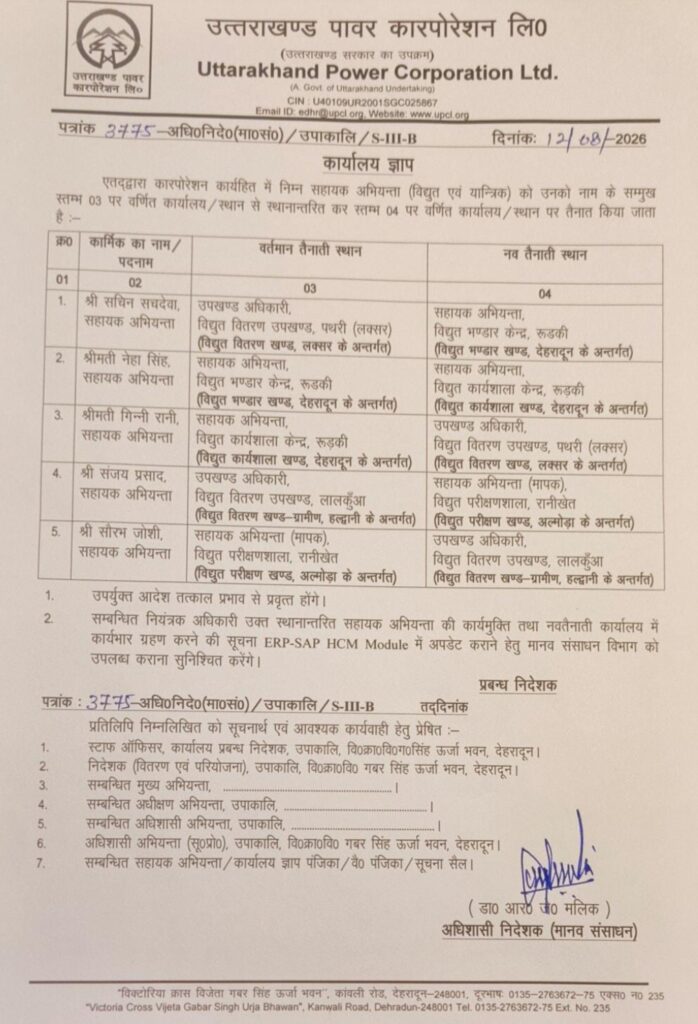 उत्तराखण्ड पावर कारपोरेशन लि०
(उत्तराखण्ड सरकार का उपक्रम)
Uttarakhand Power Corporation Ltd.
(A Govt. of Uttarakhand Undertaking)
CIN : U40109UR2001SGC025867
Email ID: edhr@upcl.org, Website: www.upcl.org
उत्तराखण्ड पावर
कारपोरेशन लि०
पत्रांक 3775-अधि0निदे0(मा0सं0)/उपाकालि/S-III-B दिनांक: 12/08/-2026
कार्यालय ज्ञाप
एतद्द्वारा कारपोरेशन कार्यहित में निम्न सहायक अभियन्ता (विद्युत एवं यान्त्रिक) को उनको नाम के सम्मुख
स्तम्भ 03 पर वर्णित कार्यालय/स्थान से स्थानान्तरित कर स्तम्भ 04 पर वर्णित कार्यालय/स्थान पर तैनात किया जाता
है :–
क्र0 कार्मिक का नाम/ पदनाम वर्तमान तैनाती स्थान नव तैनाती स्थान
01 02 03 04
1. श्री सचिन सचदेवा, सहायक अभियन्ता
उपखण्ड अधिकारी,
विद्युत वितरण उपखण्ड, पथरी (लक्सर)
(विद्युत वितरण खण्ड, लक्सर के अन्तर्गत)
सहायक अभियन्ता,
विद्युत भण्डार केन्द्र, रूडकी
(विद्युत भण्डार खण्ड, देहरादून के अन्तर्गत)
2. श्रीमती नेहा सिंह, सहायक अभियन्ता
सहायक अभियन्ता,
विद्युत भण्डार केन्द्र, रूडकी
(विद्युत भण्डार खण्ड, देहरादून के अन्तर्गत)
सहायक अभियन्ता,
विद्युत कार्यशाला केन्द्र, रूड़की
(विद्युत कार्यशाला खण्ड, देहरादून के अन्तर्गत)
3. श्रीमती गिन्नी रानी, सहायक अभियन्ता
सहायक अभियन्ता,
विद्युत कार्यशाला केन्द्र, रूड़की
(विद्युत कार्यशाला खण्ड, देहरादून के अन्तर्गत)
उपखण्ड अधिकारी,
विद्युत वितरण उपखण्ड, पथरी (लक्सर)
(विद्युत वितरण खण्ड, लक्सर के अन्तर्गत)
4. श्री संजय प्रसाद, सहायक अभियन्ता
उपखण्ड अधिकारी,
विद्युत वितरण उपखण्ड, लालकुँआ
(विद्युत वितरण खण्ड–ग्रामीण, हल्द्वानी के अन्तर्गत)
सहायक अभियन्ता (मापक),
विद्युत परीक्षणशाला, रानीखेत
(विद्युत परीक्षण खण्ड, अल्मोड़ा के अन्तर्गत)
5. श्री सौरभ जोशी, सहायक अभियन्ता
सहायक अभियन्ता (मापक),
विद्युत परीक्षणशाला, रानीखेत
(विद्युत परीक्षण खण्ड, अल्मोड़ा के अन्तर्गत)
उपखण्ड अधिकारी,
विद्युत वितरण उपखण्ड, लालकुँआ
(विद्युत वितरण खण्ड–ग्रामीण, हल्द्वानी के अन्तर्गत)
1. उपर्युक्त आदेश तत्काल प्रभाव से प्रवृत्त होंगे।
2. सम्बन्धित नियंत्रक अधिकारी उक्त स्थानान्तरित सहायक अभियन्ता की कार्यमुक्ति तथा नवतैनाती कार्यालय में
कार्यभार ग्रहण करने की सूचना ERP-SAP HCM Module में अपडेट कराने हेतु मानव संसाधन विभाग को
उपलब्ध कराना सुनिश्चित करेंगे।
प्रबन्ध निदेशक
पत्रांक : 3775-अधि0निदे0(मा0सं0)/उपाकालि/S-III-B तद्दिनांक
प्रतिलिपि निम्नलिखित को सूचनार्थ एवं आवश्यक कार्यवाही हेतु प्रेषित :–
1. स्टाफ ऑफिसर, कार्यालय प्रबन्ध निदेशक, उपाकालि, वि0क्रा0वि0ग0सिंह ऊर्जा भवन, देहरादून।
2. निदेशक (वितरण एवं परियोजना), उपाकालि, वि0क्रा0वि0 गबर सिंह ऊर्जा भवन, देहरादून।
3. सम्बन्धित मुख्य अभियन्ता, ............................................।
4. सम्बन्धित अधीक्षण अभियन्ता, उपाकालि, ....................................।
5. सम्बन्धित अधिशासी अभियन्ता, उपाकालि, ....................................।
6. अधिशासी अभियन्ता (सू0प्रो0), उपाकालि, वि0क्रा0वि0 गबर सिंह ऊर्जा भवन, देहरादून।
7. सम्बन्धित सहायक अभियन्ता/कार्यालय ज्ञाप पंजिका/वै0 पंजिका/सूचना सैल।
( डा0 आर0 जे0 मलिक )
अधिशासी निदेशक (मानव संसाधन)
"विक्टोरिया क्रास विजेता गबर सिंह ऊर्जा भवन", कांवली रोड, देहरादून–248001, दूरभाष: 0135–2763672–75 एक्स0 न0 235
"Victoria Cross Vijeta Gabar Singh Urja Bhawan", Kanwali Road, Dehradun-248001 Tel. 0135-2763672-75 Ext. No. 235